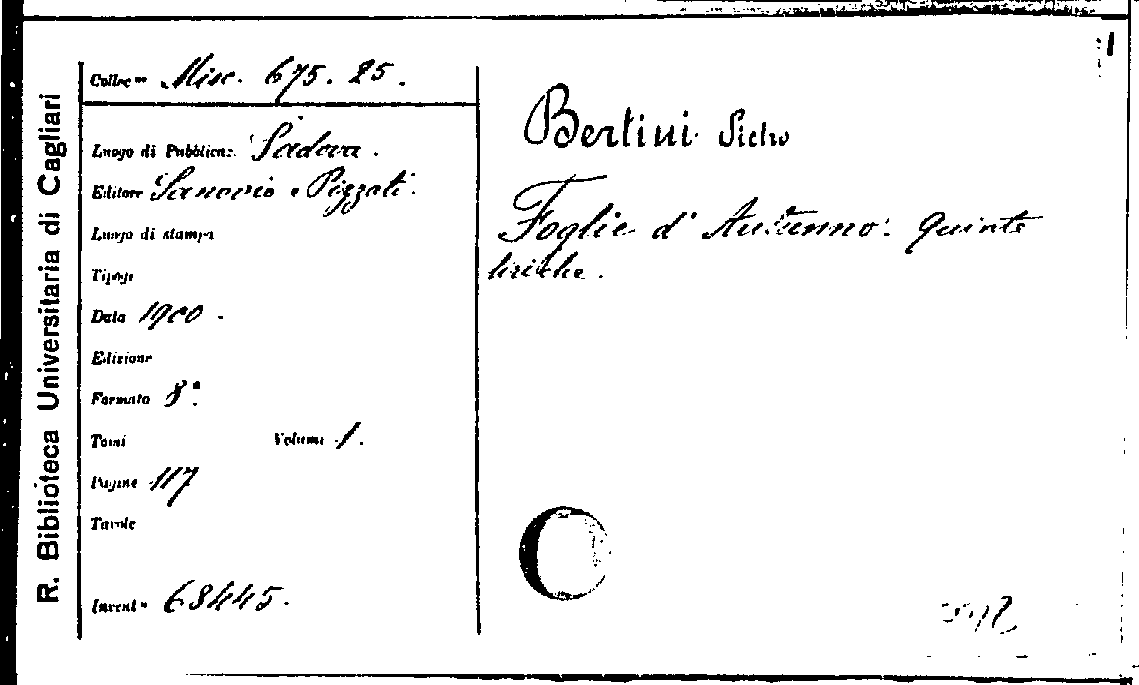 R. Biblioteca Universitaria di Cagliari
Colloc ne Misc. 675. 25.
Luogo di Pubblicaz. Padova.
Editore e Pizzati.
Luogo di stampa
Tipogr
Data 1900.
Edizione
Formato 8º.
Tomi Volumi 1.
Pagine 117
Tavole
Invent º 68445.
Bertini
Foglie d'Autunno. Quinte
liriche.